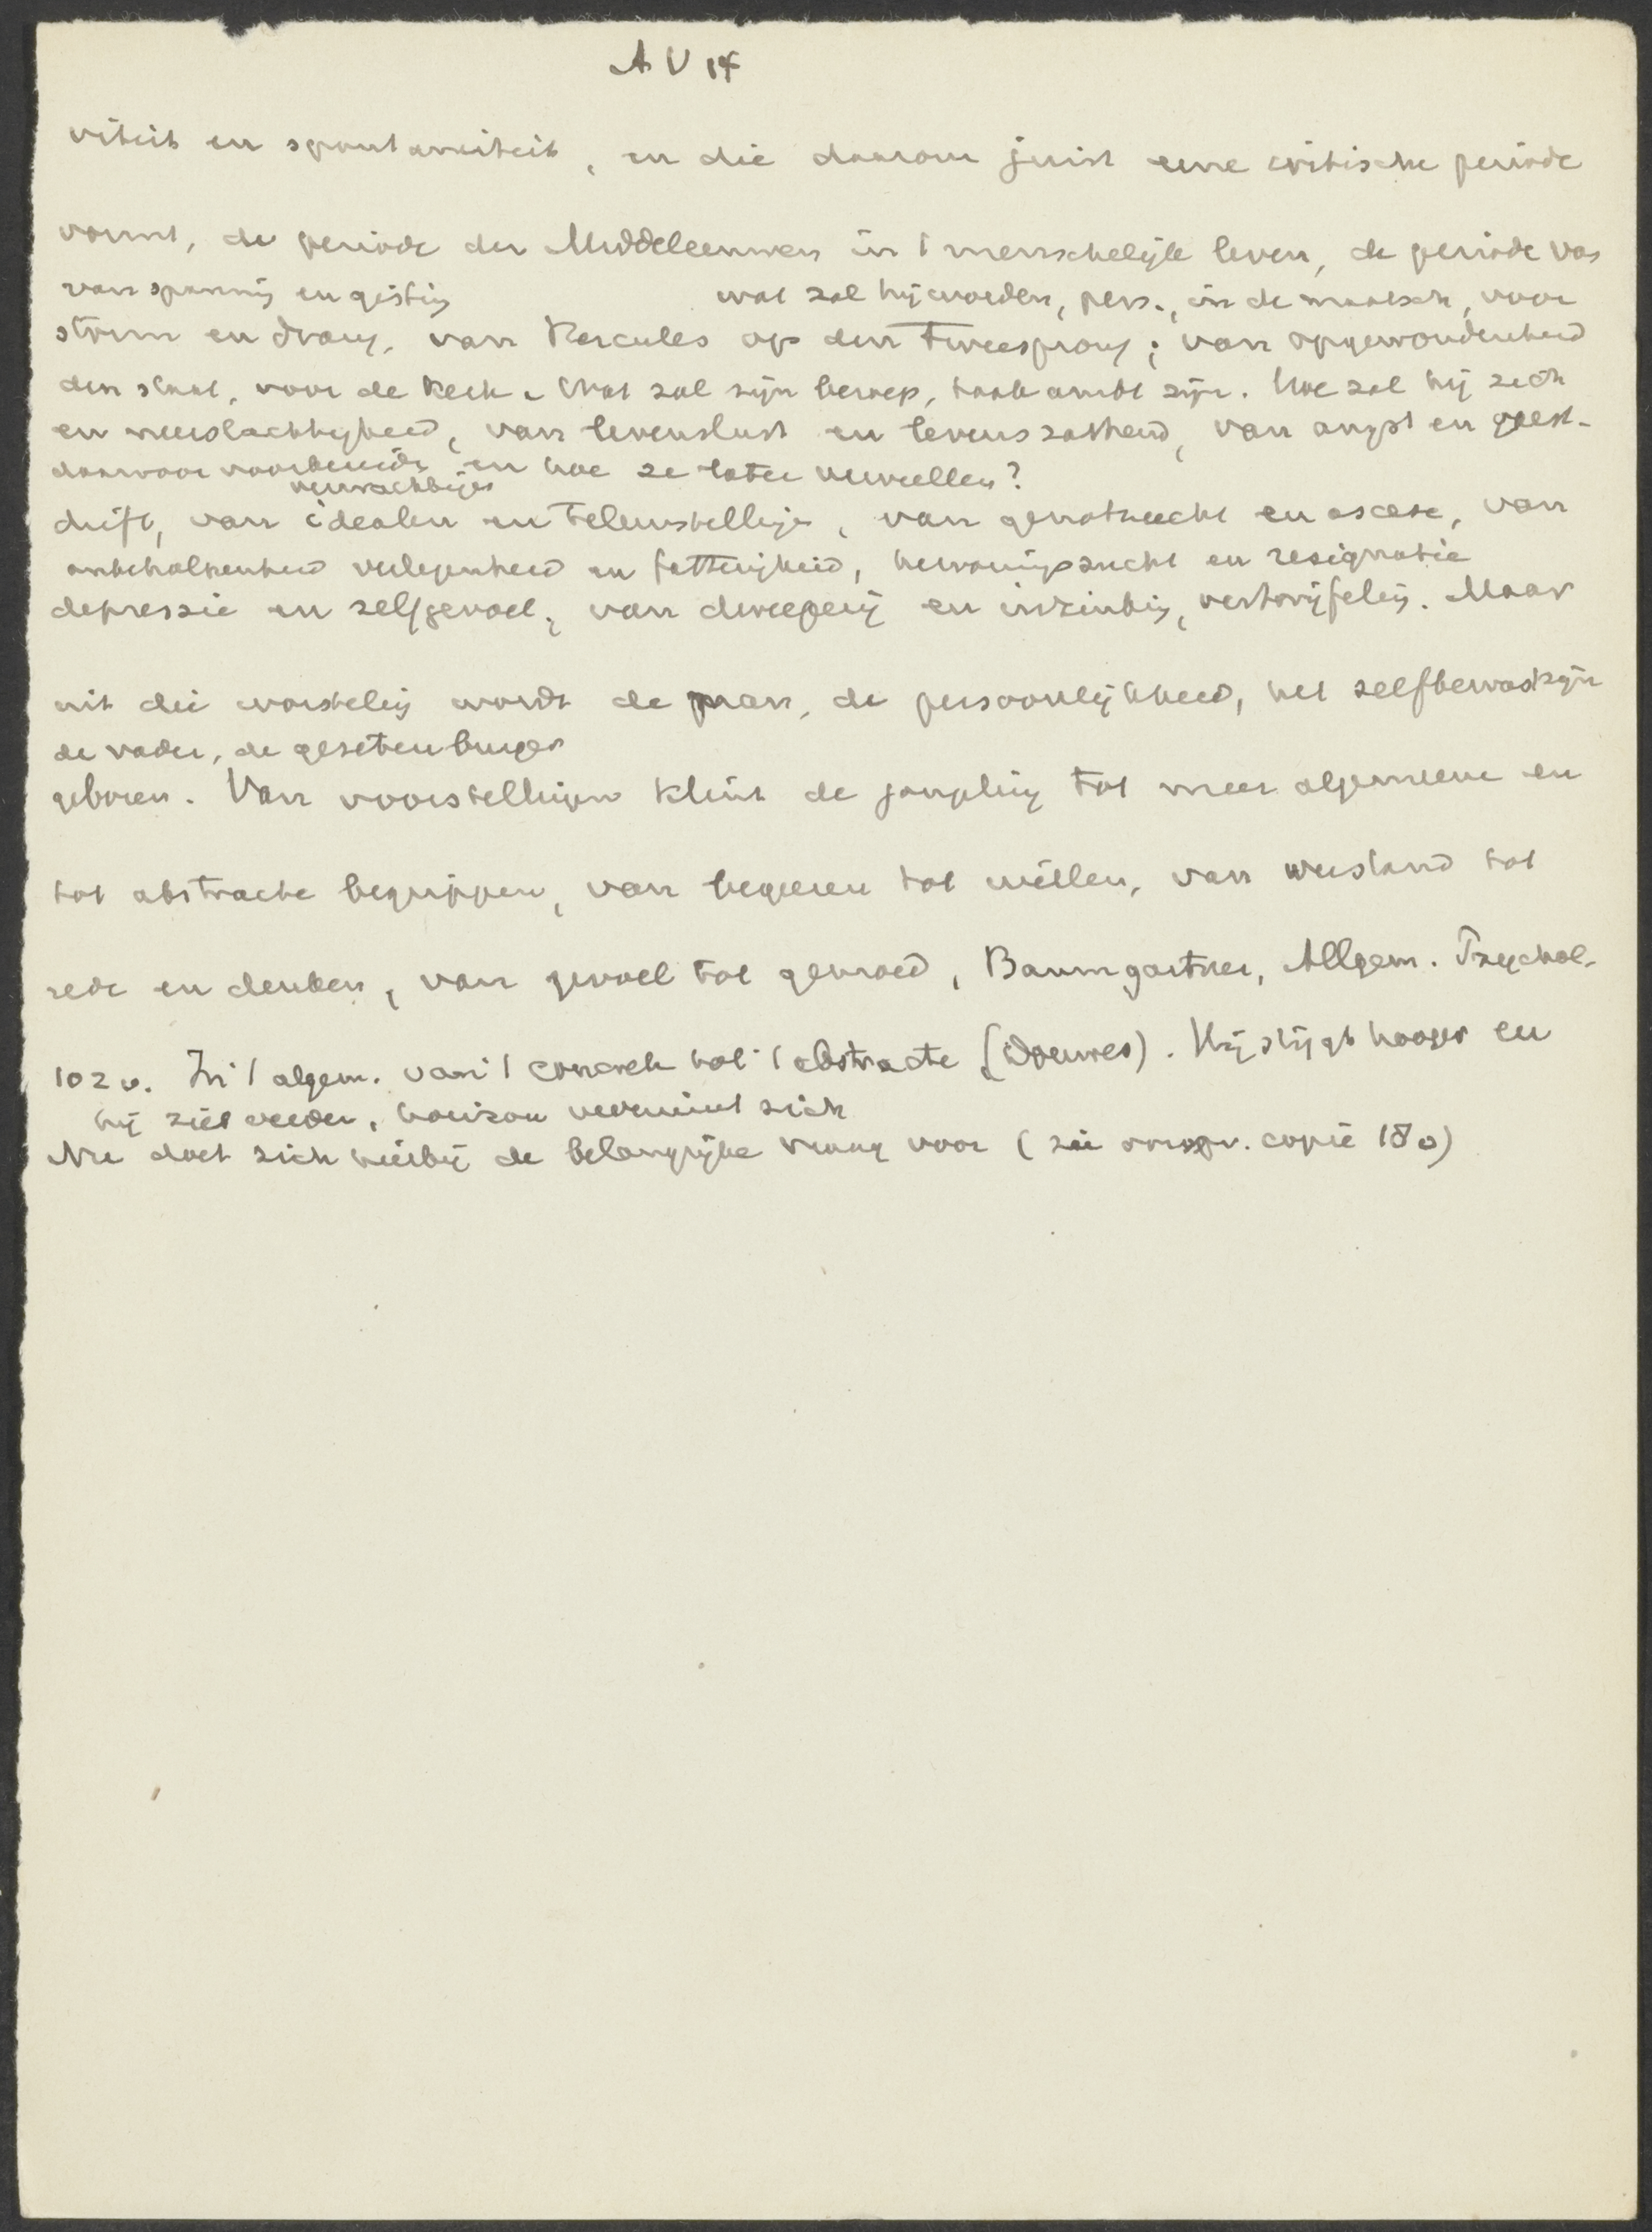 A V 14
viteit en spontaneiteit, en die daarom juist eene critische periode
vormt, de periode der Middeleeuwen in 't menschelijk leven, de periode van
van spanning en gisting wat zal hij worden, pers., in de maatsch, voor
storm en drang, van Hercules op den Tweesprong; van opgewondenheid
den staat, voor de kerk. Wat zal zijn beroep, taak ambt zijn. Hoe zal hij zich
en neerslachtigheid, van levenslust en levenszatheid, van angst en geest-
daarvoor voorbereide en hoe ze later vervullen?
verwachtingen
drift, van idealen en Teleurstelling, van genotzucht en ascese, van
onbeholpenheid verlegenheid en fatterigheid, hervormingszucht en resignatie
depressie en zelfgevoel, van dweeperij en inzinking, vertwijfeling. Maar
uit die worsteling wordt de man, de persoonlijkheid, het zelfbewustzijn
de vader, de gezeten burger
geboren. Van voorstellingen klimt de jongeling tot meer algemeene en
tot abstracte begrippen, van begeeren tot willen, van verstand tot
rede en denken, van gevoel tot gemoed, Baumgartner, Allgem. Psychol.
102 v. In 't algem. van 't concrete tot 't abstracte (Douwes). Hij stijgt hooger en
hij ziet verder, horizon verruimt zich
Nu doet zich hierbij de belangrijke vraag voor (zie oorspr. copie 180)